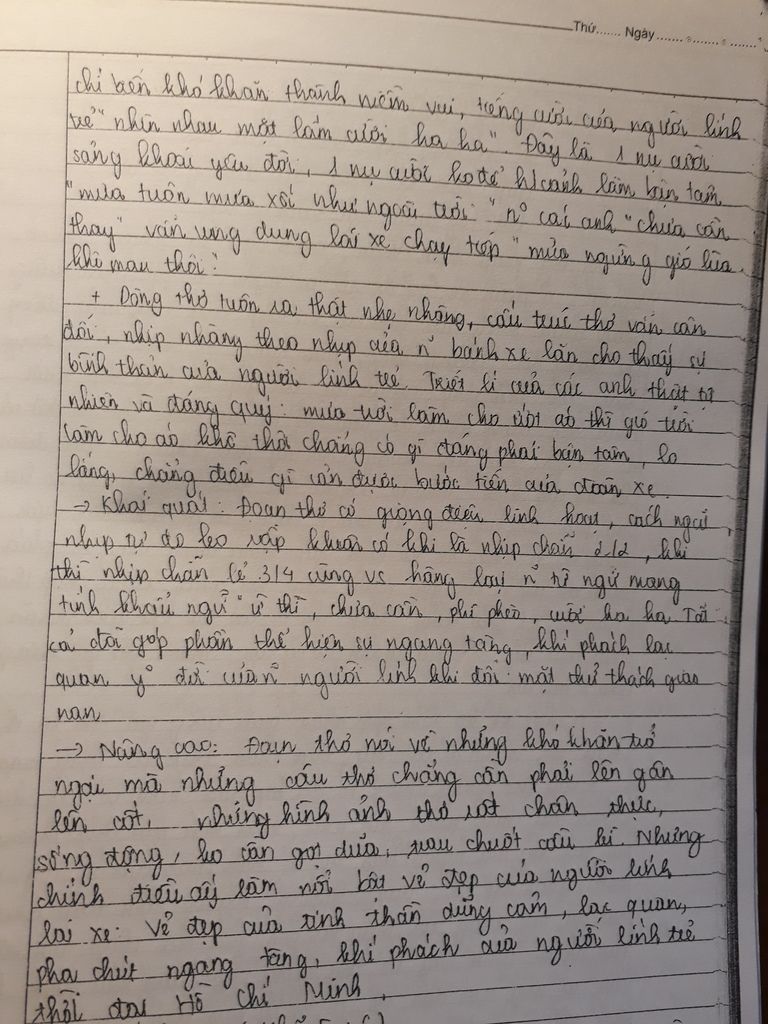 Thứ....... Ngày...............
chỉ biến khó khăn thành niềm vui, tiếng cười của người lính
trẻ "nhìn nhau mặt lấm cười ha ha". Đây là 1 nụ cười
sảng khoái yêu đời, 1 nụ cười ko để h/cảnh làm bận tâm
"mưa tuôn mưa xối như ngoài trời" n° các anh "chưa cần
thay" vẫn ung dung lái xe chạy tiếp "mưa ngừng gió lùa
khô mau thôi".
+ Dòng thơ tuôn ra thật nhẹ nhàng, cấu trúc thơ vẫn cân
đối, nhịp nhàng theo nhịp của n~ bánh xe lăn cho thấy sự
bình thản của người lính trẻ. Triết lí của các anh thật tự
nhiên và đáng quý: mưa trời làm cho ướt áo thì gió trời
làm cho áo khô thôi chẳng có gì đáng phải bận tâm, lo
lắng, chẳng điều gì cản được bước tiến của đoàn xe.
→ Khái quát: Đoạn thơ có giọng điệu linh hoạt, cách ngắt
nhịp tự do leo khi là nhịp chẵn 2/2, khi
thì nhịp chẵn lẻ 3/4 cùng vs hàng loạt n~ từ ngữ mang
tính khẩu ngữ "ừ thì, chưa cần, phì phèo, cười ha ha Tất
cả đã góp phần thể hiện sự ngang tàng, khí phách lạc
quan y° đời của n~ người lính khi đối mặt thử thách gian
nan
→ Nâng cao: Đoạn thơ nói về những khó khăn trở
ngại mà những câu thơ chẳng cần phải lên gân
lên cốt, những hình ảnh thơ rất chân thực,
sống động, ko cần gọt dũa, trau chuốt cầu kì. Nhưng
chính điều ấy làm nổi bật vẻ đẹp của người lính
lái xe: Vẻ đẹp của tinh thần dũng cảm, lạc quan,
pha chút ngang tàng, khí phách của người lính trẻ
thời đại Hồ Chí Minh.